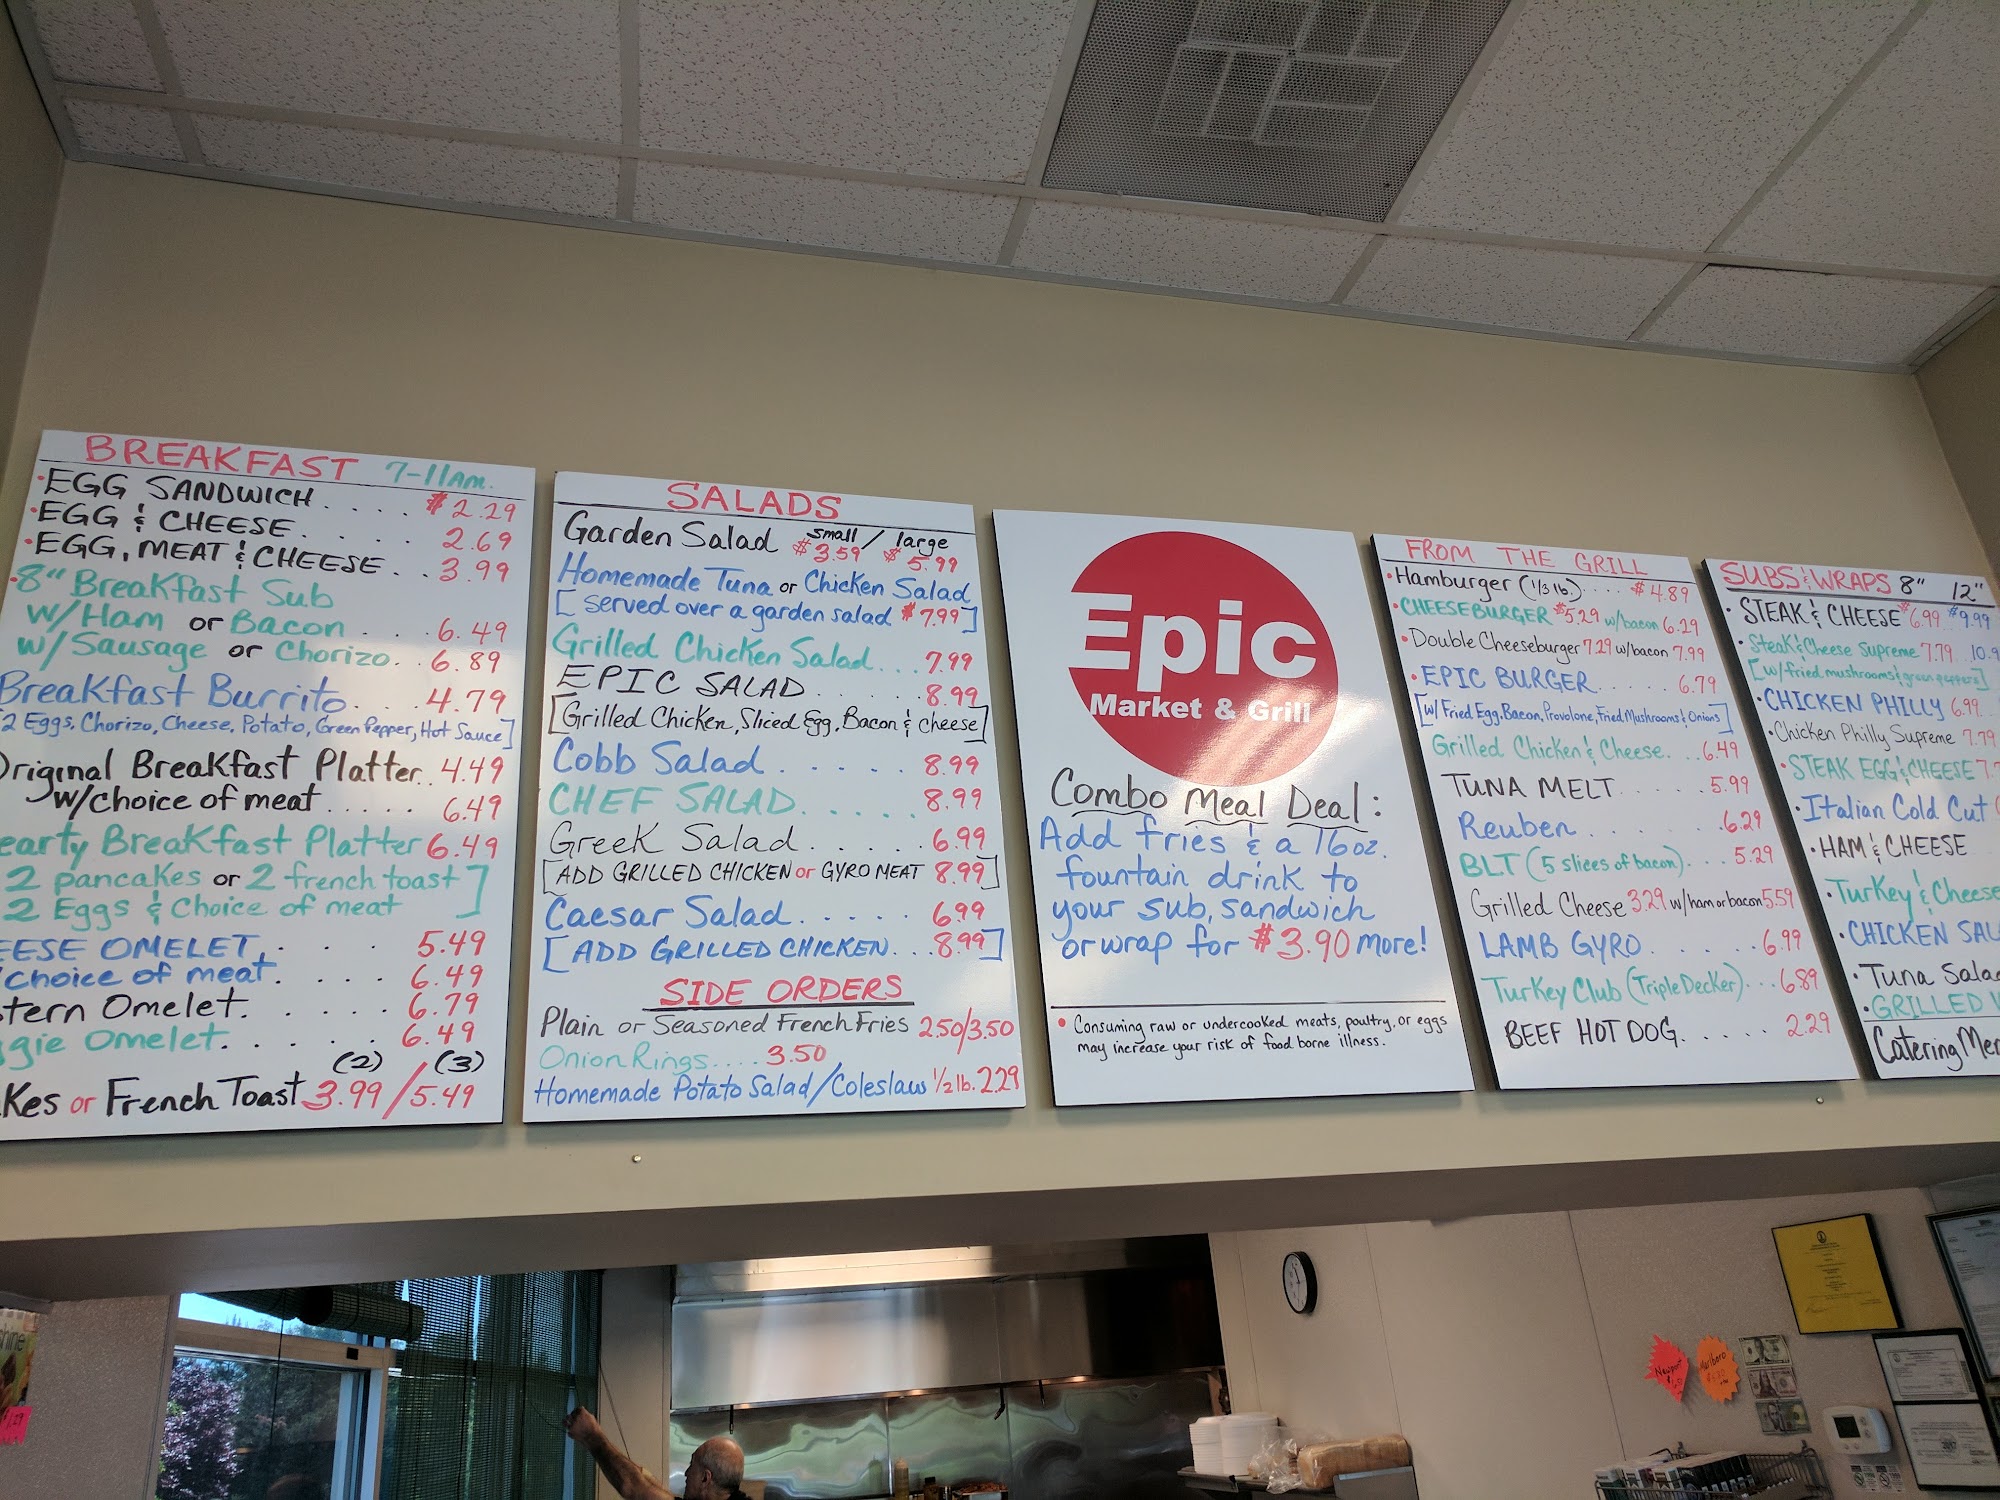 BREAKFAST 7-11AM.
•EGG SANDWICH.... $2.29
•EGG & CHEESE..... 2.69
•EGG, MEAT & CHEESE.. 3.99
•8" Breakfast Sub
w/Ham or Bacon... 6.49
w/Sausage or Chorizo.. 6.89
Breakfast Burrito... 4.79
2 Eggs, Chorizo, Cheese, Potato, Green Pepper, Hot Sauce]
Original Breakfast Platter.. 4.49
w/choice of meat..... 6.49
earty Breakfast Platter 6.49
2 pancakes or 2 french toast
2 Eggs & Choice of meat]
EESE OMELET.... 5.49
choice of meat..... 6.49
tern Omelet...... 6.79
ggie Omelet...... 6.49
(2) (3)
kes or French Toast 3.99/5.49
SALADS
Garden Salad small $3.59 / large $5.99
Homemade Tuna or Chicken Salad
[served over a garden salad $7.99]
Grilled Chicken Salad... 7.99
EPIC SALAD...... 8.99
[Grilled Chicken, Sliced Egg, Bacon & Cheese]
Cobb Salad...... 8.99
CHEF SALAD..... 8.99
Greek Salad..... 6.99
[ADD GRILLED CHICKEN or GYRO MEAT 8.99]
Caesar Salad..... 6.99
[ADD GRILLED CHICKEN... 8.99]
SIDE ORDERS
Plain or Seasoned French Fries 2.50/3.50
Onion Rings.... 3.50
Homemade Potato Salad/Coleslaw 1/2 lb. 2.29
Epic
Market & Grill
Combo Meal Deal:
Add fries & a 16oz.
fountain drink to
your sub, sandwich
or wrap for $3.90 more!
• Consuming raw or undercooked meats, poultry, or eggs
may increase your risk of food borne illness.
FROM THE GRILL
•Hamburger (1/3 lb.).... $4.89
•CHEESEBURGER $5.29 w/bacon 6.29
•Double Cheeseburger 7.29 w/bacon 7.99
•EPIC BURGER..... 6.79
[w/ Fried Egg, Bacon, Provolone, Fried Mushrooms & Onions]
Grilled Chicken & Cheese... 6.49
TUNA MELT...... 5.99
Reuben....... 6.29
BLT (5 slices of bacon)... 5.29
Grilled Cheese 3.29 w/ham or bacon 5.59
LAMB GYRO...... 6.99
Turkey Club (Triple Decker)... 6.89
BEEF HOT DOG..... 2.29
SUBS & WRAPS 8" 12"
•STEAK & CHEESE $6.99 $9.99
•Steak & Cheese Supreme 7.79 10.9
[w/fried mushrooms & green peppers]
•CHICKEN PHILLY 6.99
•Chicken Philly Supreme 7.79
•STEAK EGG & CHEESE 7.7
•Italian Cold Cut
•HAM & CHEESE
•Turkey & Cheese
•CHICKEN SAL
•Tuna Sala
•GRILLED
Catering Me
Newport
Marlboro